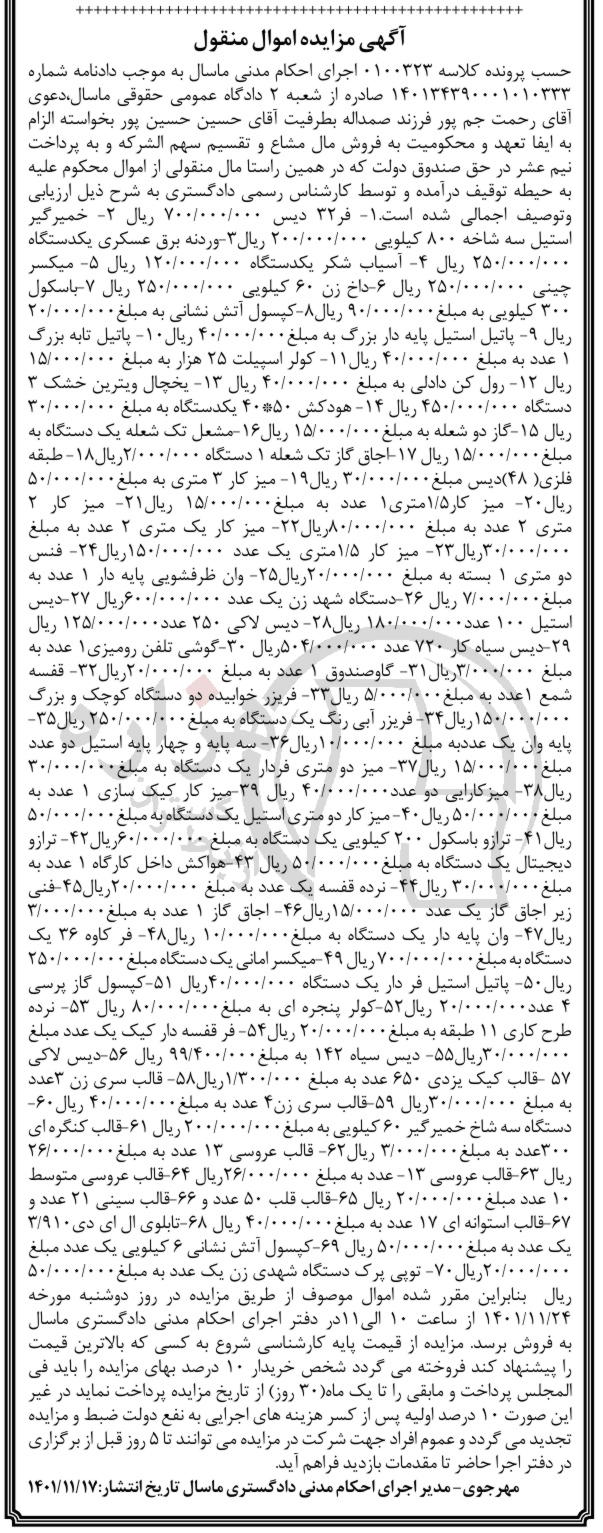 آگهی مزایده اموال منقول
حسب پرونده کلاسه ۰۱۰۰۳۲۳ اجرای احکام مدنی ماسال به موجب دادنامه شماره
۱۴۰۱۳۴۳۹۰۰۰۱۰۱۰۳۳۳ صادره از شعبه ۲ دادگاه عمومی حقوقی ماسال،دعوی
آقای رحمت جم پور فرزند صمداله بطرفیت آقای حسین حسین پور بخواسته الزام
به ایفا تعهد و محکومیت به فروش مال مشاع و تقسیم سهم الشرکه و به پرداخت
نیم عشر در حق صندوق دولت که در همین راستا مال منقولی از اموال محکوم علیه
به حیطه توقیف درآمده و توسط کارشناس رسمی دادگستری به شرح ذیل ارزیابی
وتوصیف اجمالی شده است.۱- فر۳۲ دیس ۷۰۰/۰۰۰/۰۰۰ ریال ۲- خمیرگیر
استیل سه شاخه ۸۰۰ کیلویی ۲۰۰/۰۰۰/۰۰۰ ریال۳-وردنه برق عسکری یکدستگاه
۲۵۰/۰۰۰/۰۰۰ ریال ۴- آسیاب شکر یکدستگاه ۱۲۰/۰۰۰/۰۰۰ ریال ۵- میکسر
چینی ۲۵۰/۰۰۰/۰۰۰ ریال ۶-داخ زن ۶۰ کیلویی ۲۵۰/۰۰۰/۰۰۰ ریال ۷-باسکول
۳۰۰ کیلویی به مبلغ۹۰/۰۰۰/۰۰۰ ریال۸-کپسول آتش نشانی به مبلغ۲۰/۰۰۰/۰۰۰
ریال ۹- پاتیل استیل پایه دار بزرگ به مبلغ۴۰/۰۰۰/۰۰۰ ریال۱۰- پاتیل تابه بزرگ
۱ عدد به مبلغ ۴۰/۰۰۰/۰۰۰ ریال۱۱- کولر اسپیلت ۲۵ هزار به مبلغ ۱۵/۰۰۰/۰۰۰
ریال ۱۲- رول کن دادلی به مبلغ ۴۰/۰۰۰/۰۰۰ ریال ۱۳- یخچال ویترین خشک ۳
دستگاه ۴۵۰/۰۰۰/۰۰۰ ریال ۱۴- هودکش ۵۰*۴۰ یکدستگاه به مبلغ ۳۰/۰۰۰/۰۰۰
ریال ۱۵-گاز دو شعله به مبلغ۱۵/۰۰۰/۰۰۰ ریال۱۶-مشعل تک شعله یک دستگاه به
مبلغ۱۵/۰۰۰/۰۰۰ ریال ۱۷-اجاق گاز تک شعله ۱ دستگاه ۲/۰۰۰/۰۰۰ریال۱۸- طبقه
فلزی( ۴۸)دیس مبلغ۳۰/۰۰۰/۰۰۰ ریال۱۹- میز کار ۳ متری به مبلغ۵۰/۰۰۰/۰۰۰
ریال۲۰- میز کار۱/۵متری۱ عدد به مبلغ۱۵/۰۰۰/۰۰۰ ریال۲۱- میز کار ۲
متری ۲ عدد به مبلغ ۸۰/۰۰۰/۰۰۰ریال۲۲- میز کار یک متری ۲ عدد به مبلغ
۳۰/۰۰۰/۰۰۰ریال۲۳- میز کار ۱/۵متری یک عدد ۱۵۰/۰۰۰/۰۰۰ریال۲۴- فنس
دو متری ۱ بسته به مبلغ ۲۰/۰۰۰/۰۰۰ریال۲۵- وان ظرفشویی پایه دار ۱ عدد به
مبلغ۷/۰۰۰/۰۰۰ ریال ۲۶-دستگاه شهد زن یک عدد ۶۰۰/۰۰۰/۰۰۰ریال ۲۷-دیس
استیل ۱۰۰ عدد۱۸۰/۰۰۰/۰۰۰ ریال۲۸- دیس لاکی ۲۵۰ عدد۱۲۵/۰۰۰/۰۰۰ ریال
۲۹-دیس سیاه کار ۷۲۰ عدد ۵۰۴/۰۰۰/۰۰۰ریال ۳۰-گوشی تلفن رومیزی۱ عدد به
مبلغ ۳/۰۰۰/۰۰۰ریال۳۱- گاوصندوق ۱ عدد به مبلغ ۲۰/۰۰۰/۰۰۰ریال۳۲- قفسه
شمع ۱عدد به مبلغ۵/۰۰۰/۰۰۰ ریال۳۳- فریزر خوابیده دو دستگاه کوچک و بزرگ
۱۵۰/۰۰۰/۰۰۰ریال۳۴- فریزر آبی رنگ یک دستگاه به مبلغ۲۵۰/۰۰۰/۰۰۰ ریال۳۵-
پایه وان یک عددبه مبلغ ۱۰/۰۰۰/۰۰۰ریال۳۶- سه پایه و چهار پایه استیل دو عدد
مبلغ۱۵/۰۰۰/۰۰۰ ریال۳۷- میز دو متری فردار یک دستگاه به مبلغ۳۰/۰۰۰/۰۰۰
ریال۳۸- میزکارایی دو عدد۴۰/۰۰۰/۰۰۰ ریال ۳۹-میز کار کیک سازی ۱ عدد به
مبلغ۵۰/۰۰۰/۰۰۰ ریال۴۰- میز کار دو متری استیل یک دستگاه به مبلغ۵۰/۰۰۰/۰۰۰
ریال۴۱- ترازو باسکول ۲۰۰ کیلویی یک دستگاه به مبلغ ۶۰/۰۰۰/۰۰۰ریال۴۲- ترازو
دیجیتال یک دستگاه به مبلغ۵۰/۰۰۰/۰۰۰ ریال ۴۳-هواکش داخل کارگاه ۱ عدد به
مبلغ۳۰/۰۰۰/۰۰۰ ریال۴۴- نرده قفسه یک عدد به مبلغ ۲۰/۰۰۰/۰۰۰ریال۴۵-فنی
زیر اجاق گاز یک عدد ۱۵/۰۰۰/۰۰۰ریال۴۶- اجاق گاز ۱ عدد به مبلغ۳/۰۰۰/۰۰۰
ریال۴۷- وان پایه دار یک دستگاه به مبلغ۱۰/۰۰۰/۰۰۰ ریال۴۸- فر کاوه ۳۶ یک
دستگاه به مبلغ۷۰۰/۰۰۰/۰۰۰ ریال ۴۹-میکسر امانی یک دستگاه مبلغ۲۵۰/۰۰۰/۰۰۰
ریال۵۰- پاتیل استیل فر دار یک دستگاه ۴۰/۰۰۰/۰۰۰ریال ۵۱-کپسول گاز پرسی
۴ عدد۲۰/۰۰۰/۰۰۰ ریال۵۲-کولر پنجره ای به مبلغ۸۰/۰۰۰/۰۰۰ ریال ۵۳- نرده
طرح کاری ۱۱ طبقه به مبلغ۲۰/۰۰۰/۰۰۰ ریال۵۴- فر قفسه دار کیک یک عدد مبلغ
۳۰/۰۰۰/۰۰۰ریال۵۵- دیس سیاه ۱۴۲ به مبلغ۹۹/۴۰۰/۰۰۰ ریال ۵۶-دیس لاکی
۵۷ -قالب کیک یزدی ۶۵۰ عدد به مبلغ ۱/۳۰۰/۰۰۰ریال۵۸- قالب سری زن ۳عدد
به مبلغ ۳۰/۰۰۰/۰۰۰ریال ۵۹-قالب سری زن۴ عدد به مبلغ۴۰/۰۰۰/۰۰۰ ریال۶۰-
دستگاه سه شاخ خمیرگیر ۶۰ کیلویی به مبلغ۲۰۰/۰۰۰/۰۰۰ ریال ۶۱-قالب کنگره ای
۳۰۰عدد به مبلغ۳/۰۰۰/۰۰۰ ریال۶۲- قالب عروسی ۱۳ عدد به مبلغ۲۶/۰۰۰/۰۰۰
ریال ۶۳-قالب عروسی ۱۳- عدد به مبلغ ۲۶/۰۰۰/۰۰۰ریال ۶۴-قالب عروسی متوسط
۱۰ عدد مبلغ۲۰/۰۰۰/۰۰۰ ریال ۶۵-قالب قلب ۵۰ عدد و ۶۶-قالب سینی ۲۱ عدد و
۶۷-قالب استوانه ای ۱۷ عدد به مبلغ۴۰/۰۰۰/۰۰۰ ریال ۶۸-تابلوی ال ای دی۳/۹۱۰
یک عدد به مبلغ۵۰/۰۰۰/۰۰۰ ریال ۶۹-کپسول آتش نشانی ۶ کیلویی یک عدد مبلغ
۲۰/۰۰۰/۰۰۰ریال۷۰- توپی پرک دستگاه شهدی زن یک عدد به مبلغ۵۰/۰۰۰/۰۰۰
ریال بنابراین مقرر شده اموال موصوف از طریق مزایده در روز دوشنبه مورخه
۱۴۰۱/۱۱/۲۴ از ساعت ۱۰ الی۱۱در دفتر اجرای احکام مدنی دادگستری ماسال
به فروش برسد. مزایده از قیمت پایه کارشناسی شروع به کسی که بالاترین قیمت
را پیشنهاد کند فروخته می گردد شخص خریدار ۱۰ درصد بهای مزایده را باید فی
المجلس پرداخت و مابقی را تا یک ماه(۳۰ روز) از تاریخ مزایده پرداخت نماید در غیر
این صورت ۱۰ درصد اولیه پس از کسر هزینه های اجرایی به نفع دولت ضبط و مزایده
تجدید می گردد و عموم افراد جهت شرکت در مزایده می توانند تا ۵ روز قبل از برگزاری
در دفتر اجرا حاضر تا مقدمات بازدید فراهم آید.
مهرجوی- مدیر اجرای احکام مدنی دادگستری ماسال تاریخ انتشار:۱۴۰۱/۱۱/۱۷